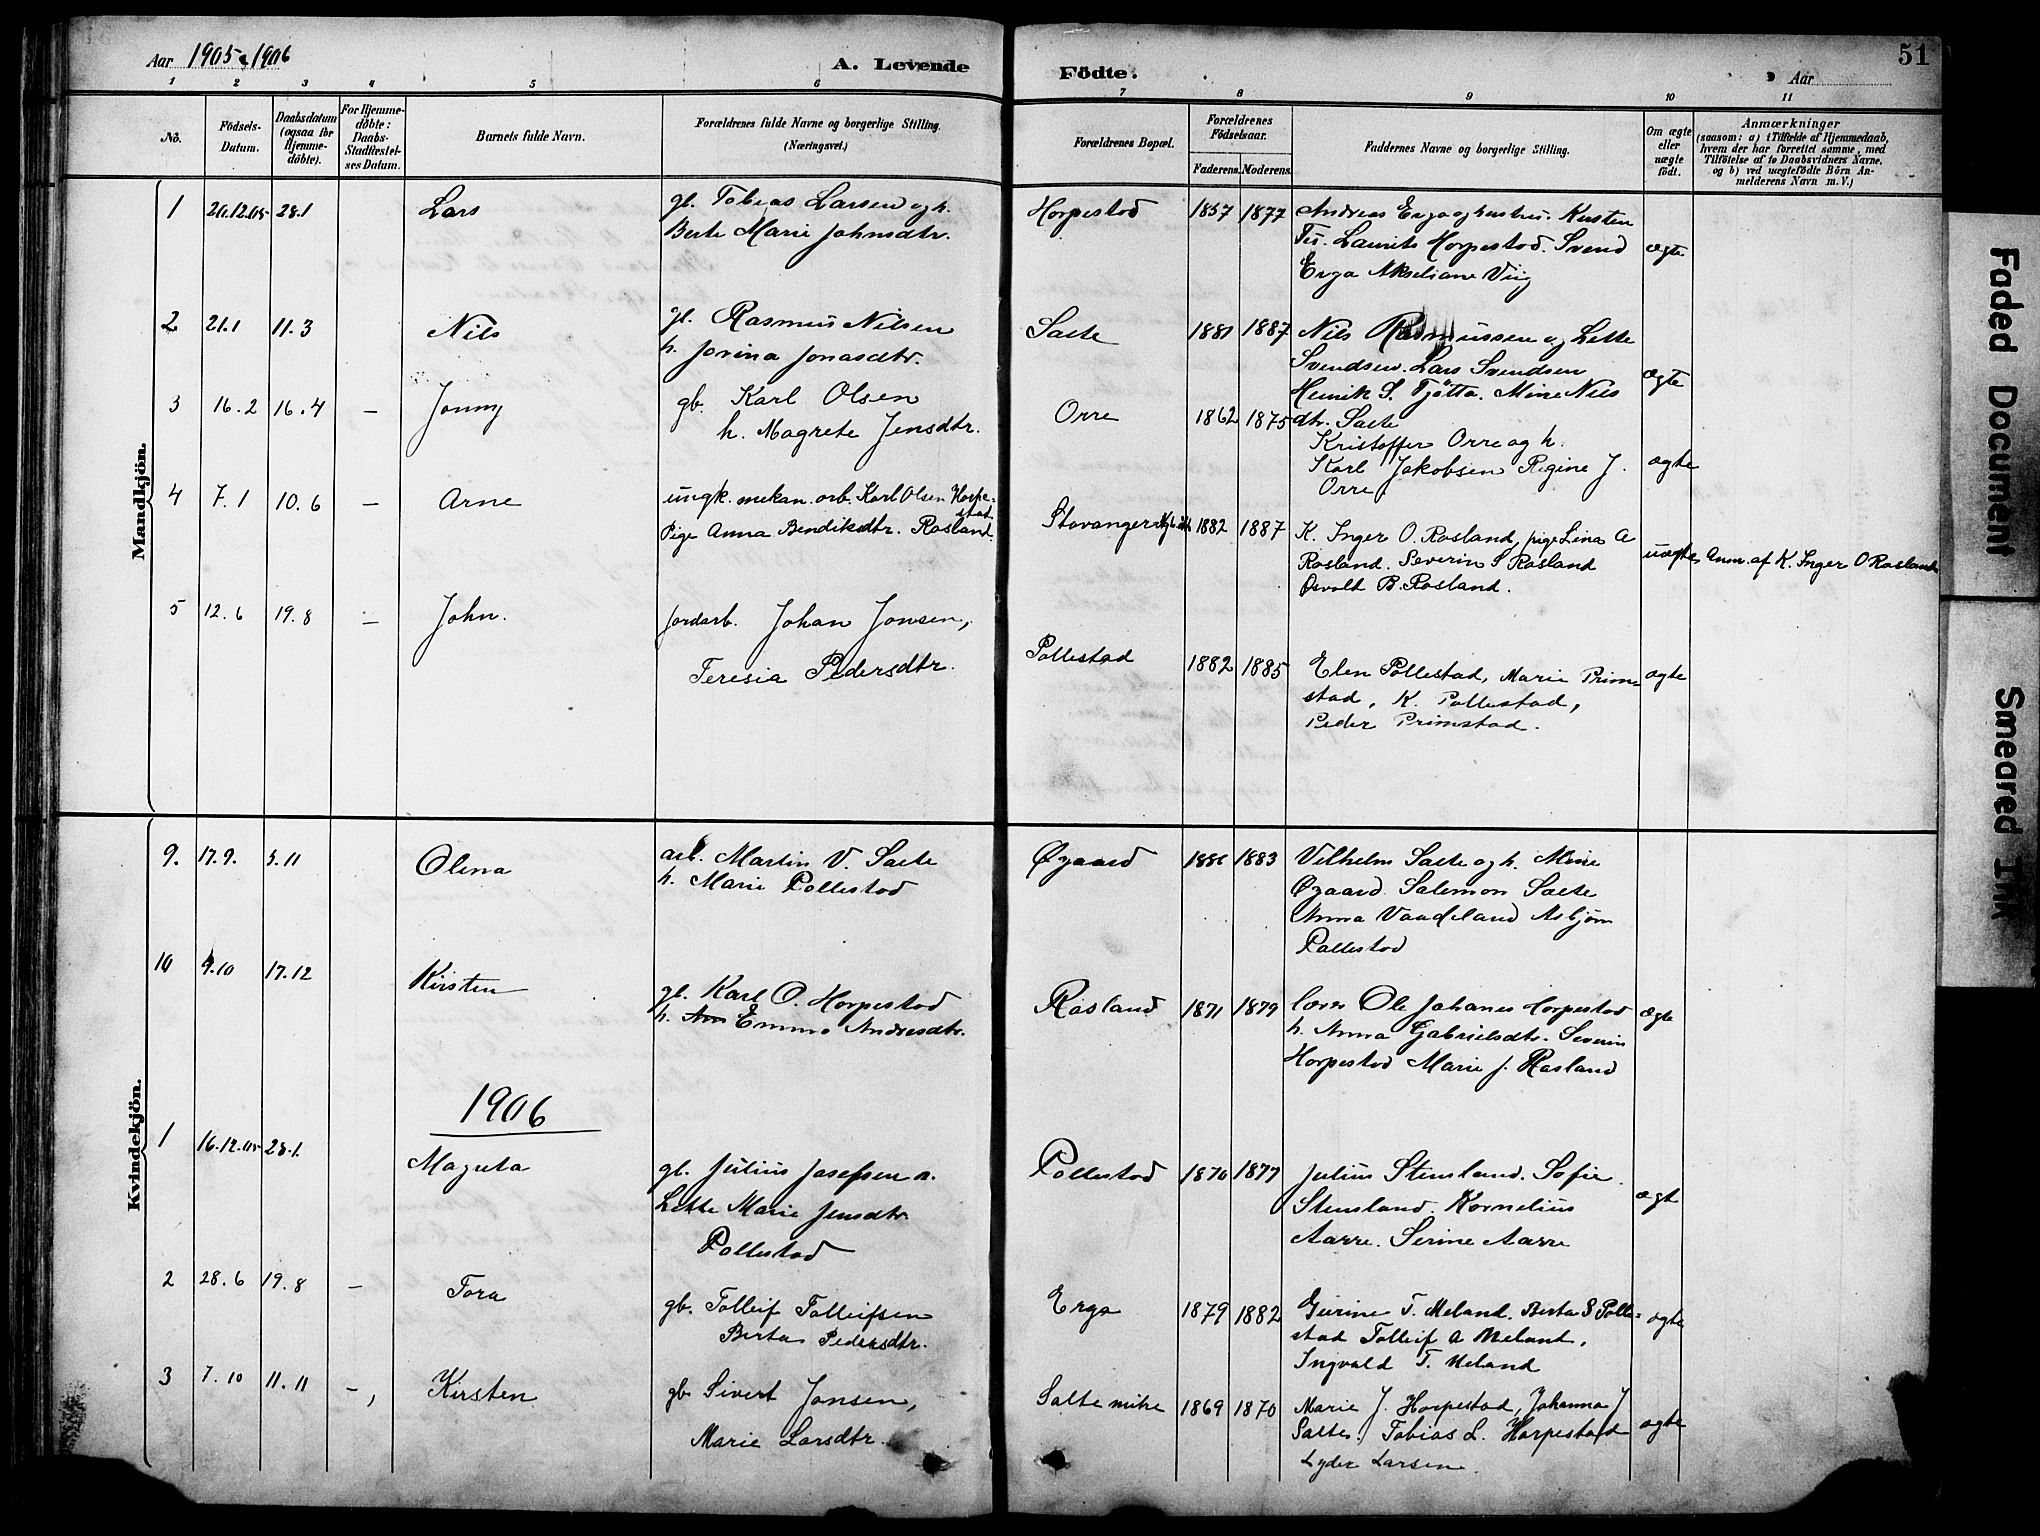 Aar 1905 & 1906
A. Levende
Födte.
Aar
51
1 2 3 4 5 6 7 8 9 10 11
No.
Födsels-Datum.
Daabsdatum (ogsaa for Hjemmedöbte).
For Hjemmedöbte: Daabs-Stadfæstelses Datum.
Barnets fulde Navn.
Forældrenes fulde Navne og borgerlige Stilling. (Næringsvei.)
Forældrenes Bopæl.
Forældrenes Födselsaar.
Faderens. Moderens.
Faddernes Navne og borgerlige Stilling.
Om ægte eller uægte födt.
Anmærkninger
(saasom: a) i Tilfælde af Hjemmedaab, hvem der har forrettet samme, med Tilföielse af to Daabsvidners Navne, og b) ved uægtefödte Börn Anmelderens Navn m. V.)
Mandkjön.
1 20.12.05 28.1 Lars
gb. Tobias Larsen og h.
Berte Marie Johnsdtr.
Horpestad 1857 1877
Andreas Erga og hustru. Kirsten
Tu. Laurits Horpestad. Svend
Erga Akseliane Viig
ægte
2 21.1 11.3 Nils
gb. Rasmus Nilsen
h. Jorina Jonasdtr.
Salte 1881 1887
Nils Rasmussen og Lette
Svendsen. Lars Svendsen
Henrik S. Tjötta. Mine Nils
dtr. Salte
ægte
3 16.2 16.4 – Jonny
gb. Karl Olsen
h. Magrete Jensdtr.
Orre 1862 1875
Kristoffer Orre og h.
Karl Jakobsen Regine J.
Orre
ægte
4 7.1 10.6 – Arne
ungk. mekan. arb. Karl Olsen Horpe-
stad
Pige Anna Bendiksdtr. Rosland.
Stavanger 1882 1887
K. Inger O. Rosland, pige Lina A
Rosland. Severin S Rosland
Osvald B. Rosland.
uægte
Anm. af K. Inger O Rosland
5 12.6 19.8 – John.
jordarb. Johan Jonsen,
Teresia Pedersdtr.
Pollestad 1882 1885
Elen Pollestad, Marie Prim-
stad, K. Pollestad,
Peder Primstad.
ægte
Kvindekjön.
9. 17.9. 5.11 Olena
arb. Martin V. Salte
h. Marie Pollestad
Øgaard 1883
Vilhelm Salte og h. Mine
Øgaard Salemon Salte
Anna Vaadeland Asbjörn
Pollestad
10 9.10 17.12 Kirsten
gb. Karl O. Horpestad
h. Emma Andresdtr.
Rosland 1871 1879
lærer Ole Johanes Horpestad
h. Anna Gabrielsdtr. Severin
Horpestad Marie J. Rosland
ægte
1906
1 16.12.05 28.1. Maguta
gb. Julius Josefsen
Lette Marie Jensdtr
Pollestad
Pollestad 1870 1877
Julius Stensland. Sofie
Stensland. Kornelius
Aarre. Serine Aarre
ægt
2 28.6 19.8 – Tora
gb. Tolleif Tolleifsen
Berta Pedersdtr.
Erga 1879 1882
Gurine T. Meland. Berta S Polle-
stad Tolleif A Meland,
Ingvald T. Meland
ægte
3 7.10 11.11 – Kirsten
gb. Sivert Jonsen,
Marie Larsdtr.
Salte mitre 1869 1870
Marie J. Horpestad, Johanna J
Salte. Tobias L. Horpestad
Lyder Larsen
ægte
Faded Document
Smeared Ink